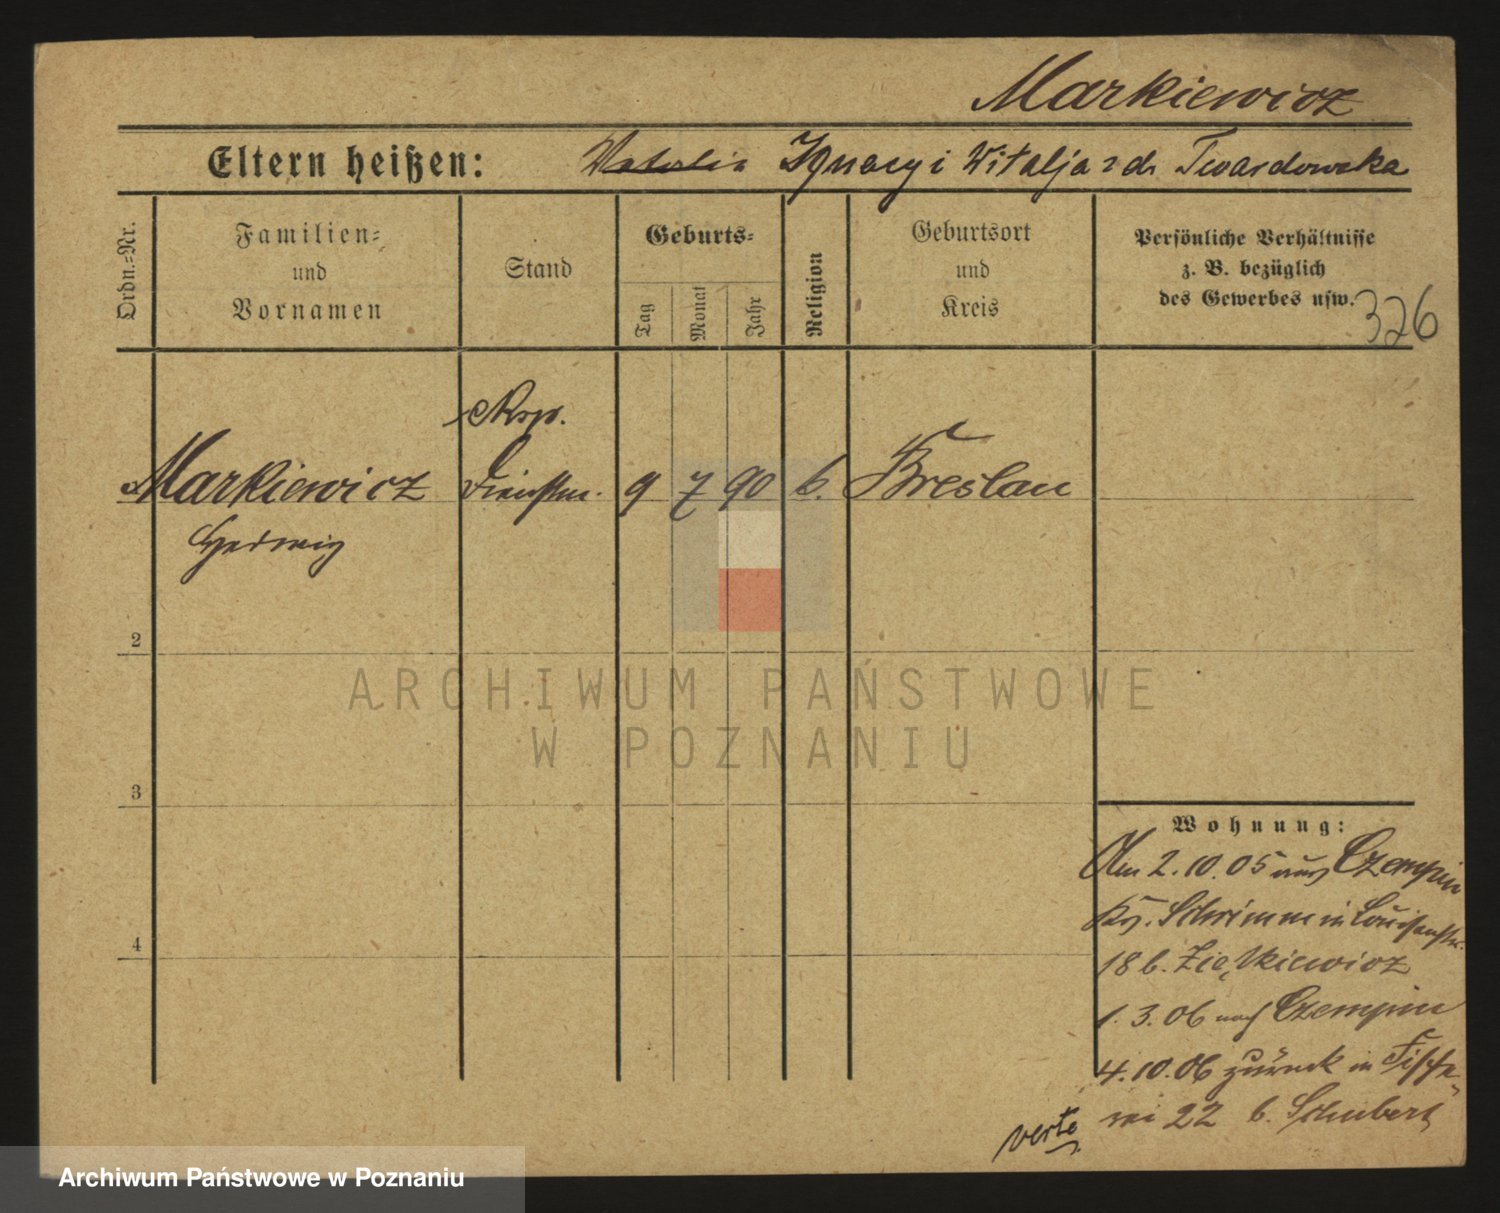 Markiewicz
Eltern heißen: Natalia Ignacy i Witalja z d. Twardowska
Ordn.-Nr.
Familien-
und
Vornamen
Stand
Geburts-
Tag
Monat
Jahr
Religion
Geburtsort
und
Kreis
Persönliche Verhältnisse
z. B. bezüglich
des Gewerbes usw.
376
Markiewicz Dienstm. 9 7 90 k. Breslau
Hedwig
2
3
4
Wohnung:
Am 2.10.05 aus Czempin
Krs. Schrimm in Louisenstr.
18 b. Ziętkiewicz
1.3.06 nach Czempin
4.10.06 zurück in Fische-
rei 22 b. Schubert
verte
ARCHIWUM PAŃSTWOWE
W POZNANIU
Archiwum Państwowe w Poznaniu